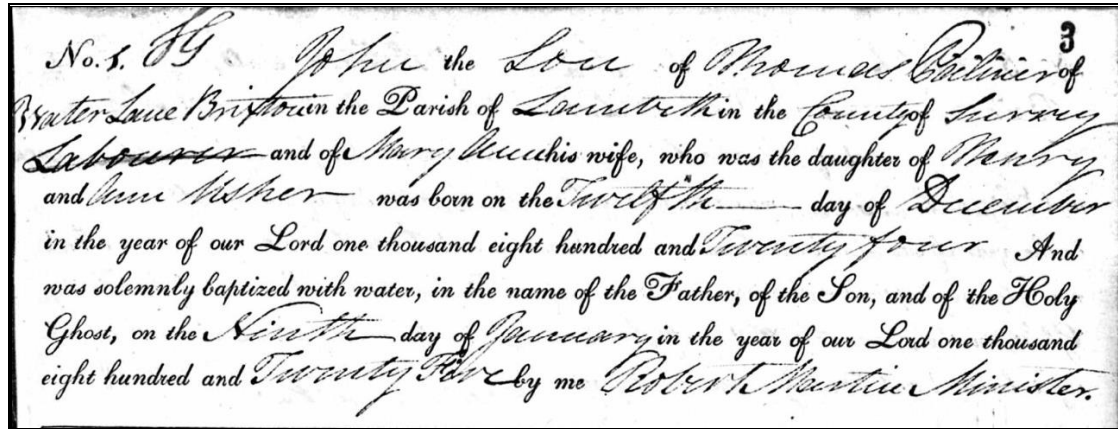 3
No. 1. John the Son of Thomas of
Water Lane Brixton in the Parish of Lambeth in the County of Surrey
Labourer and of Mary Ann his wife, who was the daughter of Henry
and Ann Usher was born on the Twelfth day of December
in the year of our Lord one thousand eight hundred and Twenty four And
was solemnly baptized with water, in the name of the Father, of the Son, and of the Holy
Ghost, on the Ninth day of January in the year of our Lord one thousand
eight hundred and Twenty Five by me Robert Martin Minister.